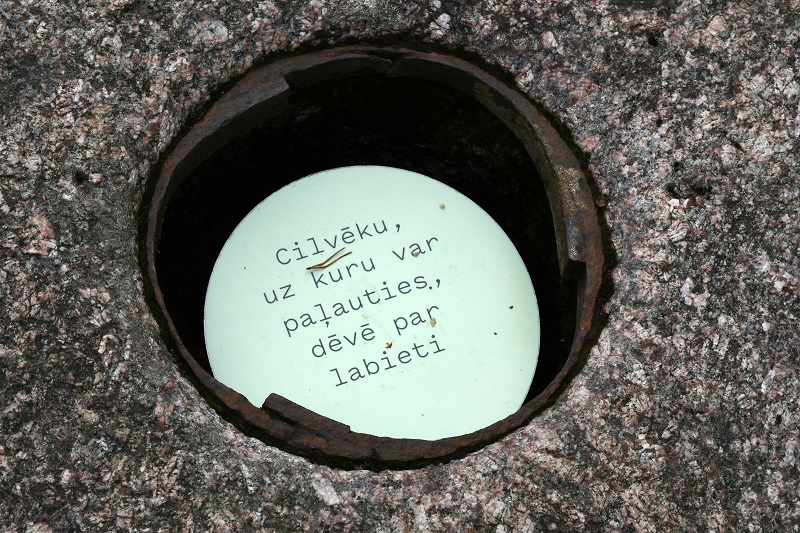 Cilvēku,
uz kuru var
paļauties,
dēvē par
labieti